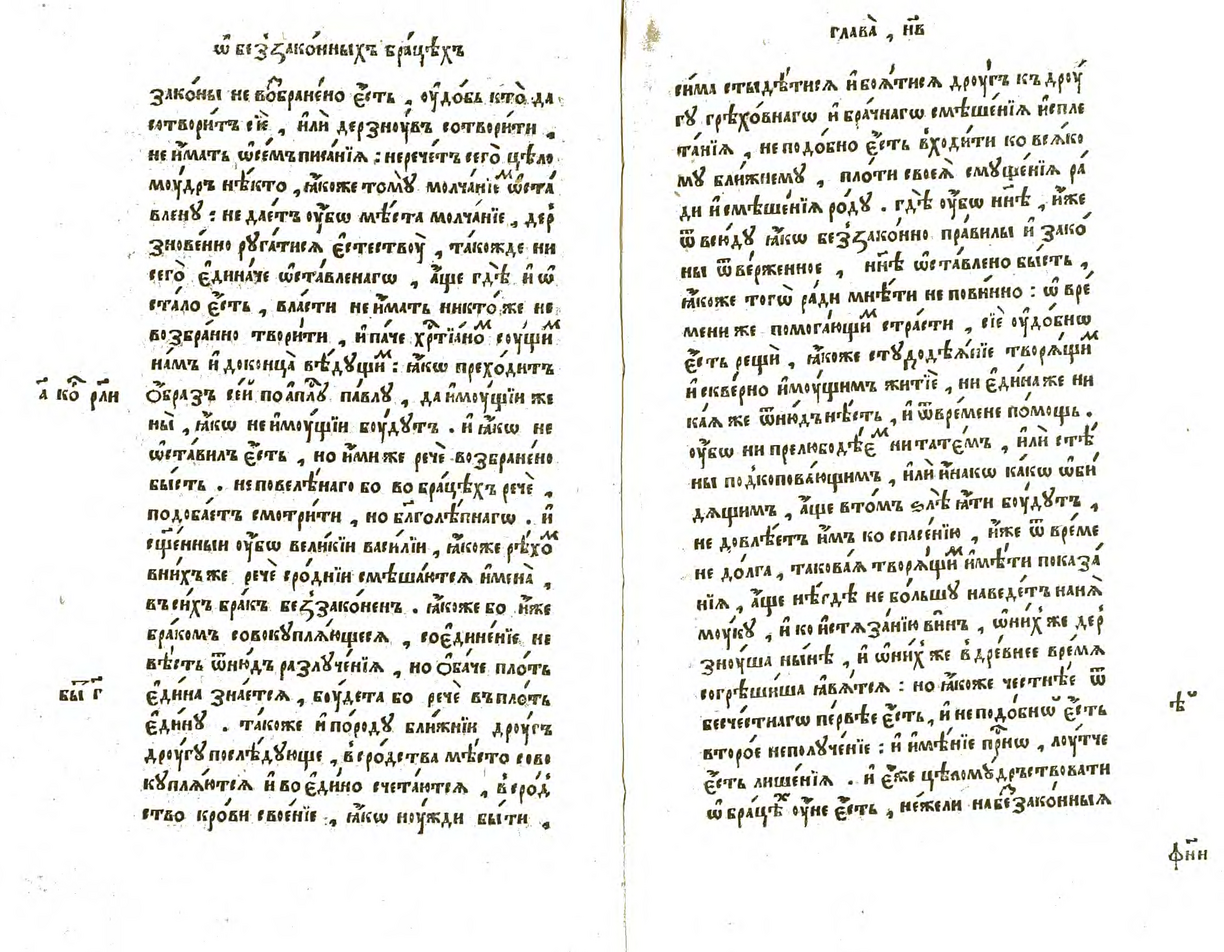 ѽ беззако́нныхъ бра́цѣхъ
зако́ны не возⷠбране́но є҆́сть , ᲂу҆до́бь кто̀ да
сотвори́тъ сїѐ , и҆лѝ дерзнꙋ́въ сотвори́ти ,
не и҆́мать ѡ҆семъ писа́нїѧ : нерече́тъ сего̀ цѣло
мꙋ́дръ нѣ́кто , ꙗ҆́коже томꙋ̀ молча́нїеⷨ ѡ҆ста́
вленꙋ : не дае́тъ ᲂу҆́бѡ мѣ́ста молча́нїе , дер
знове́нно рꙋга́тисѧ є҆стествꙋ̀ , та́кожде ни
сего̀ є҆дина́че ѡ҆ста́вленагѡ , а҆́ще гдѣ̀ и҆ ѡ҆
ста́ло є҆́сть , вла́сти не и҆́мать никто́же не
возбра́нно твори́ти , и҆ па́че хрⷭ҇тїа́ноⷨ сꙋ́щиⷨ
на́мъ и҆ доконца̀ вѣ́дꙋщиⷨ : ꙗ҆́кѡ прехо́дитъ
ѻ҆́бразъ се́й по а҆пⷭ҇лꙋ па́влꙋ , да и҆мꙋ́щїи же
ны̀ , ꙗ҆́кѡ не и҆мꙋ́щїи бꙋ́дꙋтъ . и҆ ꙗ҆́кѡ не
ѡ҆ста́вилъ є҆́сть , но и҆́ми же речѐ возбране́но
бы́сть . не повелѣ́наго бо во бра́цѣхъ речѐ ,
подоба́етъ смотри́ти , но бл҃голѣ́пнагѡ . и҆
сщ҃е́нныи ᲂу҆́бѡ вели́кїи васи́лїи , ꙗ҆́коже рѣ́хоⷨ
вни́хъ же речѐ сро́днїи смѣша́ютсѧ и҆мена̀ ,
въ си́хъ бра́къ беззако́ненъ . ꙗ҆́коже бо и҆́же
бра́комъ совокꙋплѧ́ющесѧ , соєдине́нїе не
вѣ́сть ѿню́дъ разлꙋче́нїѧ , но ѻ҆ба́че пло́ть
є҆ди́на зна́етсѧ , бꙋ́дета бо речѐ въ пло́ть
є҆ди́нꙋ . та́коже и҆ по ро́дꙋ бли́жнїи дрꙋ́гъ
дрꙋ́гꙋ послѣ́дꙋюще , в сро́дства мѣ́сто сово
кꙋплѧ́ютсѧ и҆ во є҆ди́но счета́ютсѧ , в сро́д
ство кро́ви своє́нїе , ꙗ҆́кѡ нꙋ́жди бы́ти ,
а҃ коⷬ рл҃и
бы҃ г҃
глава̀ , н҃в
си́ма стыдѣ́тисѧ и҆ боѧ́тисѧ дрꙋ́гъ къ дрꙋ́
гꙋ грѣхо́внагѡ и҆ бра́чнагѡ смѣше́нїѧ и҆спле
та́нїѧ , не подо́бно є҆́сть входи́ти ко всѧ́ко
мꙋ бли́жнемꙋ , пло́ти своеѧ̀ смꙋще́нїѧ ра́
ди и҆ смѣше́нїѧ ро́дꙋ . гдѣ̀ ᲂу҆́бѡ нн҃ѣ , и҆́же
ѿ всю́дꙋ ꙗ҆́кѡ беззако́нно пра́вилы и҆ зако́
ны ѿве́рженное , нн҃ѣ ѡ҆ста́влено бы́сть ,
ꙗ҆́коже тогѡ̀ ра́ди мнѣ́ти не пови́нно : ѿ вре́
мени же помога́ющиⷨ стра́сти , сїѐ ᲂу҆до́бнѡ
є҆́сть рещѝ , ꙗ҆́коже стꙋдодѣѧ́нїе творѧ́щиⷨ
и҆ скве́рно и҆мꙋ́щимъ житїѐ , ни є҆ди́на же ни
ка́ѧ же ѿню́дъ нѣ́сть , и҆ ѿ вре́мене по́мощь .
ᲂу҆́бѡ ни прелюбодѣ́еⷨ ни тате́мъ , и҆лѝ стѣ́
ны подкопова́ющимъ , и҆лѝ и҆́накѡ ка́кѡ ѡ҆би́
дѧщимъ , а҆́ще в то́мъ ѕлѣ̀ ꙗ҆́ти бꙋ́дꙋтъ ,
не довлѣ́етъ и҆̀мъ ко спасе́нїю , и҆́же ѿ вре́ме
не до́лга , такова́ѧ творѧ́щиⷨ и҆мѣ́ти показа́
нїѧ , а҆́ще нѣ́гдѣ не бо́льшꙋ наведе́тъ на нѧ̀
мꙋ́кꙋ , и҆ ко и҆стѧза́нїю ви́нъ , ѡ҆ ни́хже дер
знꙋ́ша ны́нѣ , и҆ ѡ҆ ни́хже в дре́внее вре́мѧ
согрѣши́ша ꙗ҆вѧ́тсѧ : но ꙗ҆́коже честнѣ́е ѿ
бесче́стнагѡ пе́рвѣе є҆́сть , и҆ не подо́бнѡ є҆́сть
второ́е неполꙋче́нїе : и҆ и҆мѣ́нїе прⷭ҇нѡ , лꙋ́тче
є҆́сть лише́нїѧ . и҆ є҆́же цѣломꙋ́дрьствовати
ѡ҆ бра́цѣⷯ ᲂу҆́не є҆́сть , не́жели на беззако́нныѧ